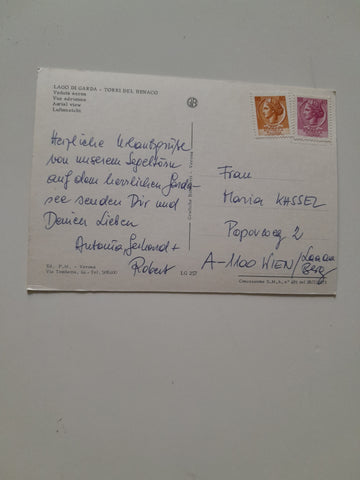 LAGO DI GARDA - TORRI DEL BENACO
Veduta aerea
Vue aérienne
Aerial view
Luftansicht
Herzliche Urlaubsgrüße
von unserem Segeltörn
auf dem herrlichen Garda-
see senden Dir und
Deinen Lieben
Antonia, Gerhard +
Robert
Ed. P.M. - Verona
LG 257
Frau
Maria KASSEL
Poporweg 2
A-1100 WIEN/Laaer
Berg